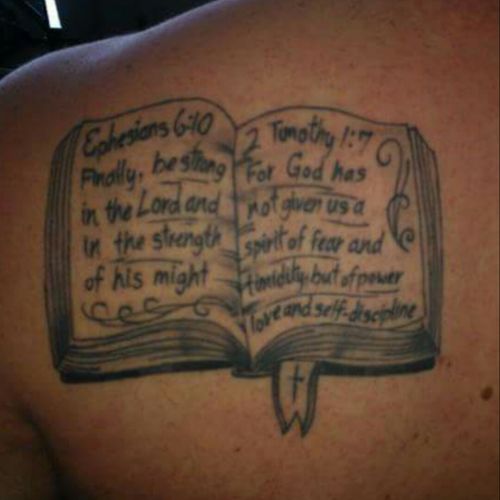 Ephesians 6:10
Finally, be strong
in the Lord and
in the strength
of his might
2 Timothy 1:7
For God has
not given us a
spirit of fear and
timidity but of power
love and self-discipline